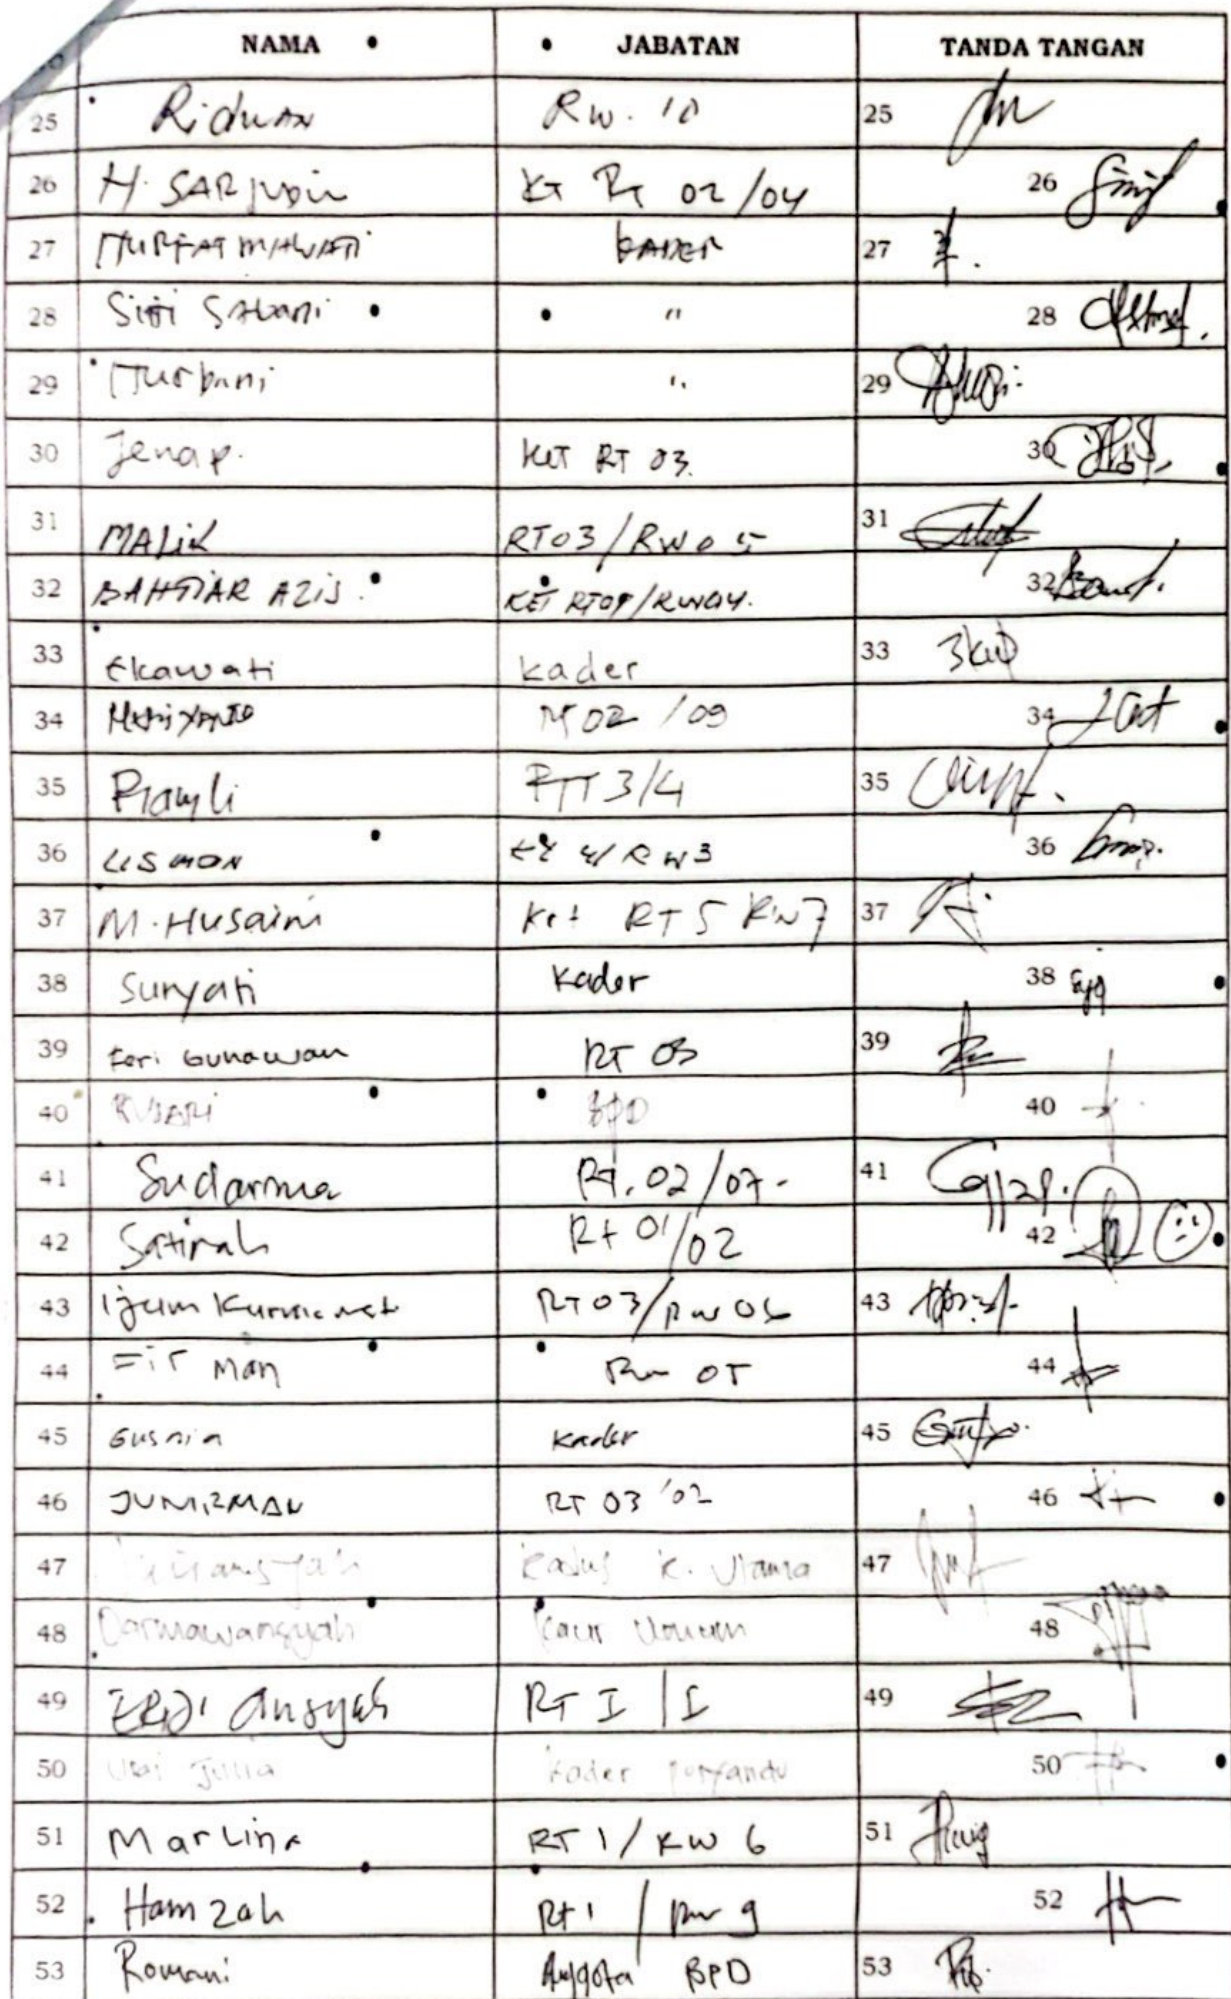 NAMA JABATAN TANDA TANGAN
25 Riduan RW. 10 25
26 H. SARJUDIN KT Rt 02/04 26
27 NURFATMAWATI KADER 27
28 Siti Sabani " 28
29 Nurbani " 29
30 Jenap. Ket RT 03. 30
31 MALIK RT03/RW05 31
32 BAHTIAR AZIS. KET RT01/RW04. 32
33 Ekawati kader 33
34 02/09 34
35 3/4 35
36 USMAN 4/RW3 36
37 M. Husaini Ket RT 5 RW7 37
38 Suryati Kader 38
39 Feri Gunawan RT 03 39
40 RUSARI BPD 40
41 Sudarma Rt. 02/07- 41
42 Satirah Rt 01/02 42
43 Kurniawat RT 03/RW 06 43
44 Fir Man 44
45 Gusnia Kader 45
46 JUNIRMAN RT 03 '02 46
47 Kadus K. Utama 47
48 Darmawansyah Kaur Umum 48
49 ansyah RT I / I 49
50 Julia Kader posyandu 50
51 Marlina RT 1 / RW 6 51
52 Hamzah Rt 1 / RW 9 52
53 Romani Anggota BPD 53